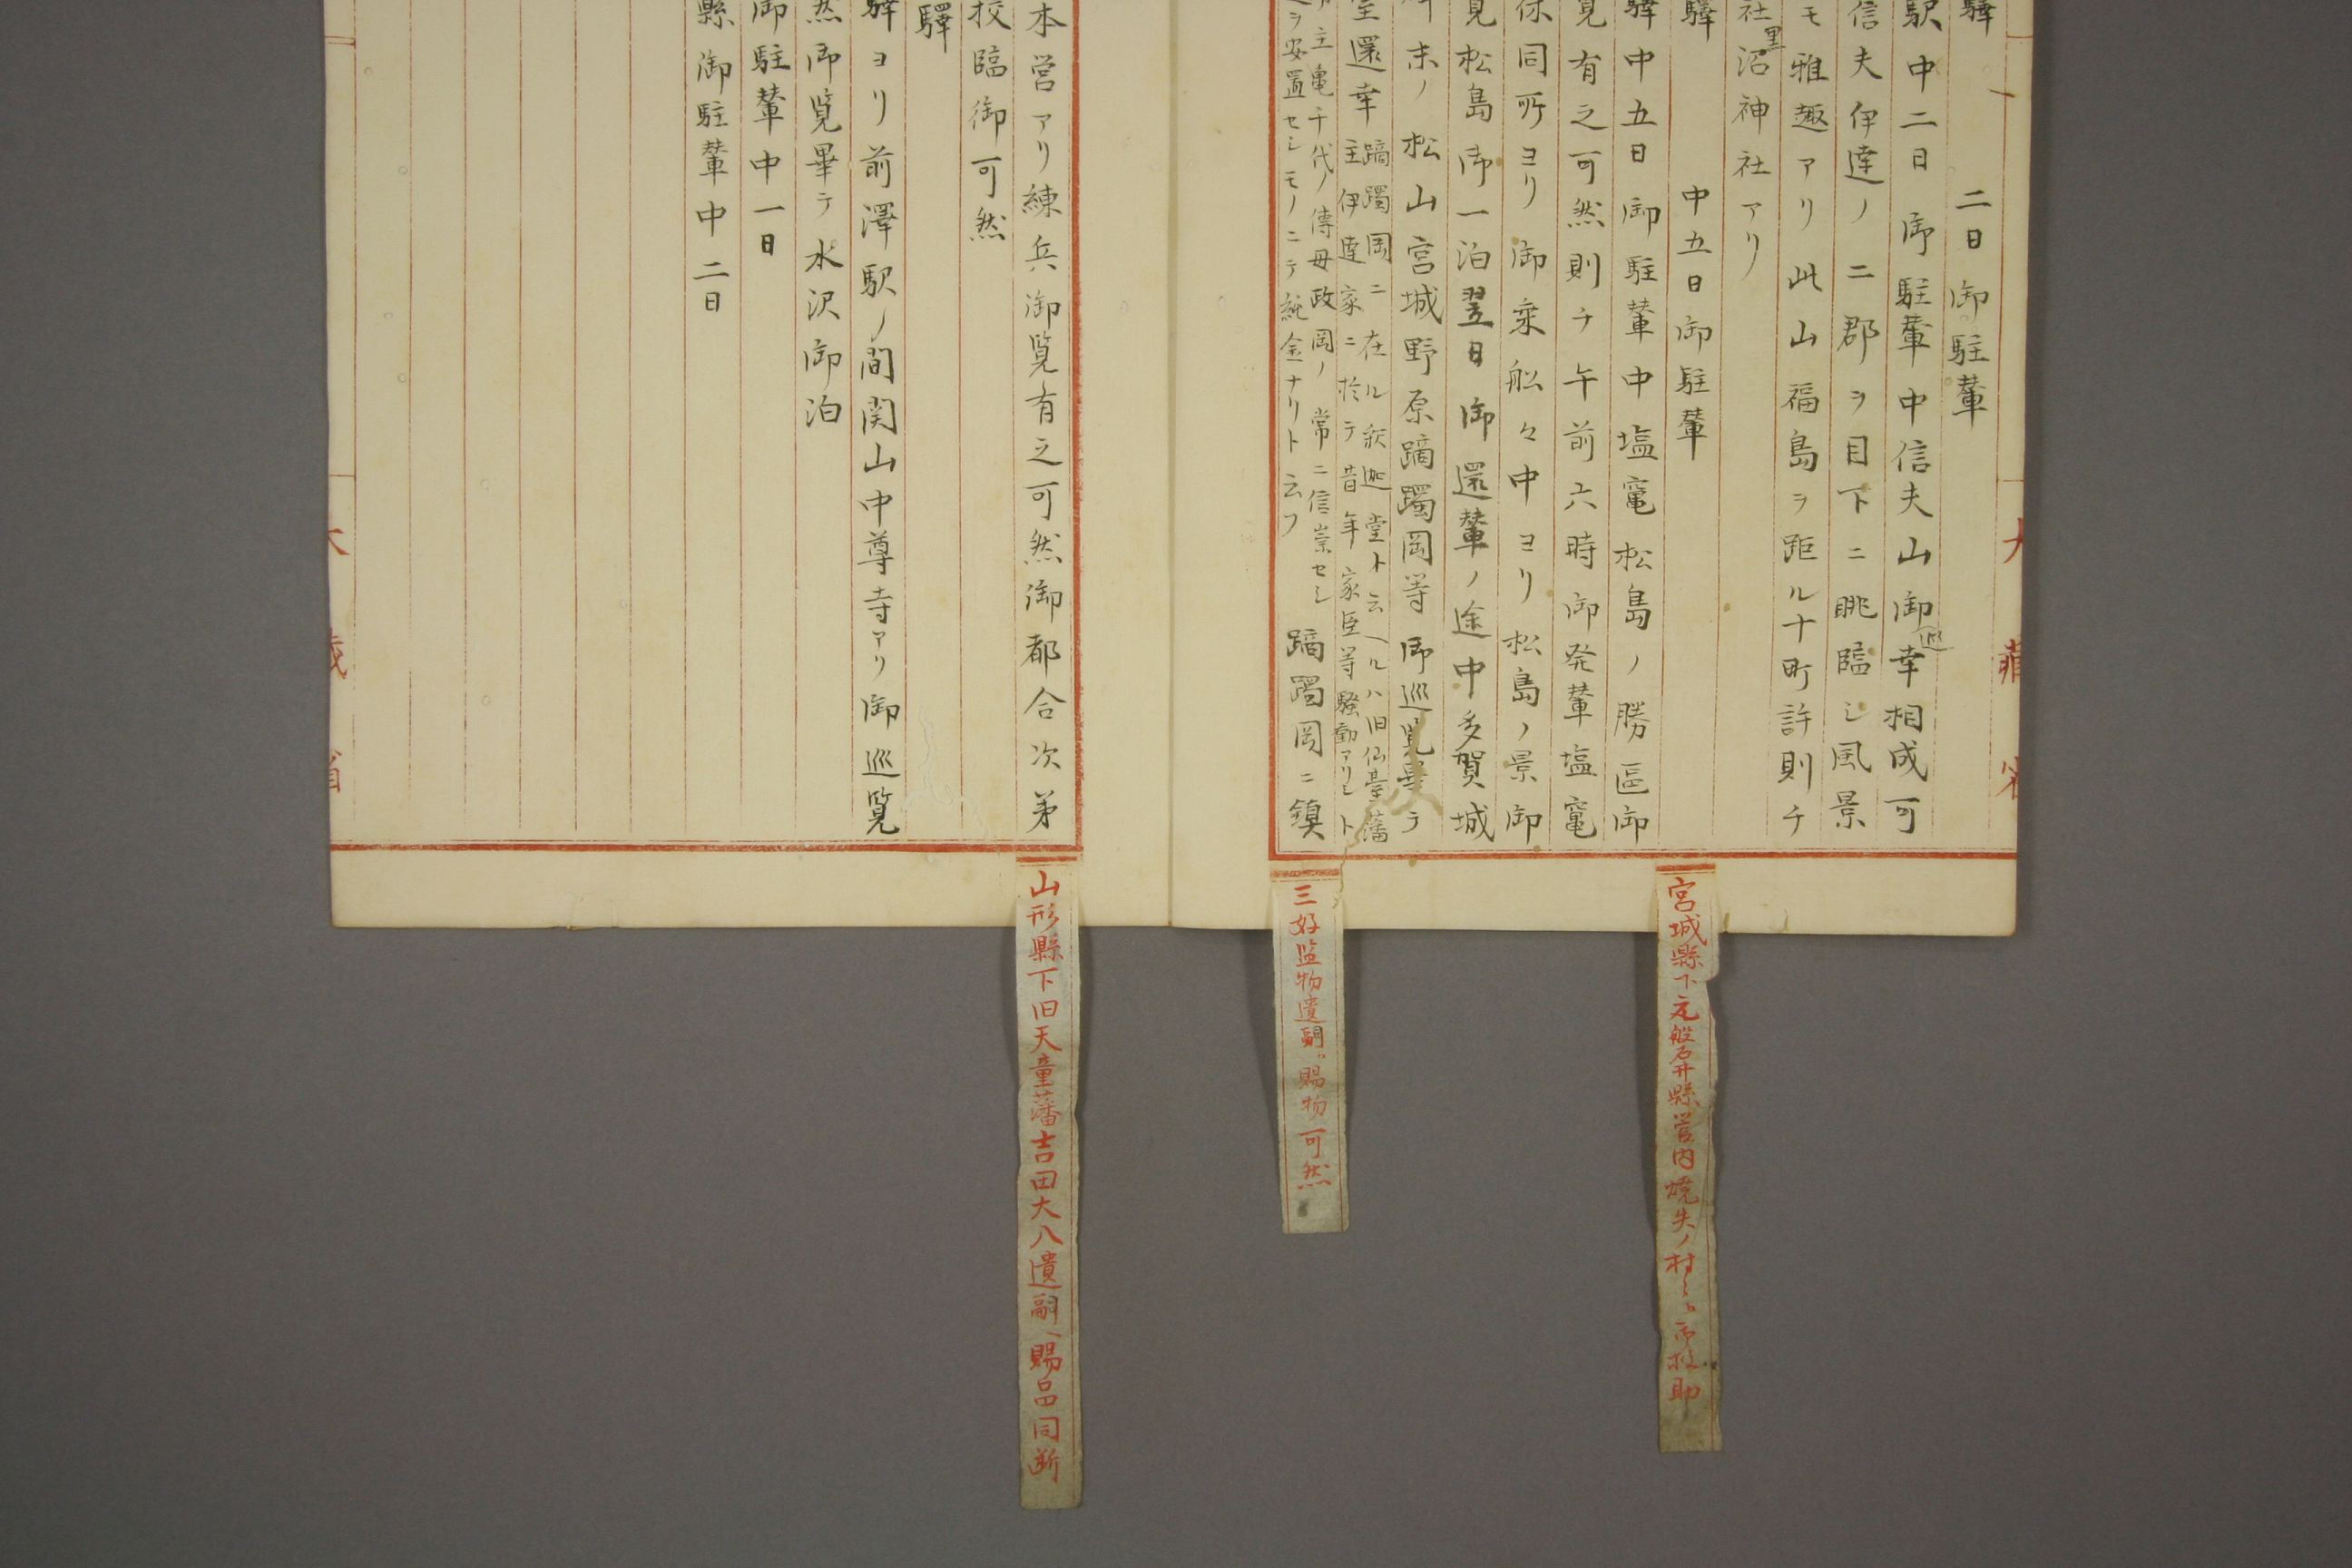 驛　二日御駐輦
駅中二日御駐輦中信夫山御巡幸相成可
信夫伊達ノ二郡ヲ目下ニ眺臨シ風景
モ雅趣アリ此山福島ヲ距ル十町許則チ
社黒沼神社アリ
驛　中五日御駐輦
驛中五日御駐輦中塩竃松島ノ勝區御
覧有之可然則チ午前六時御発輦塩竃
同所ヨリ御乗船々中ヨリ松島ノ景御
見松島御一泊翌日御還輦ノ途中多賀城
末ノ松山宮城野原躑躅岡等御巡覧畢テ
還幸
躑躅岡ニ在ル釈迦堂ト云ヘルハ旧仙臺藩
主伊達家ニ於テ昔年家臣等騒動アリシト
主亀千代ノ傳母政岡ノ常ニ信崇セシ
ヲ安置セシモノニテ純金ナリト云フ
躑躅岡ニ鎮
本営アリ練兵御覧有之可然御都合次第
校臨御可然
驛
驛ヨリ前澤駅ノ間関山中尊寺アリ御巡覧
然御覧畢テ水沢御泊
御駐輦中一日
縣御駐輦中二日
宮城縣下元磐井縣管内焼失ノ村々御救助
三好監物遺嗣ヘ賜物可然
山形縣下旧天童藩吉田大八遺嗣ヘ賜品同断
大藏省